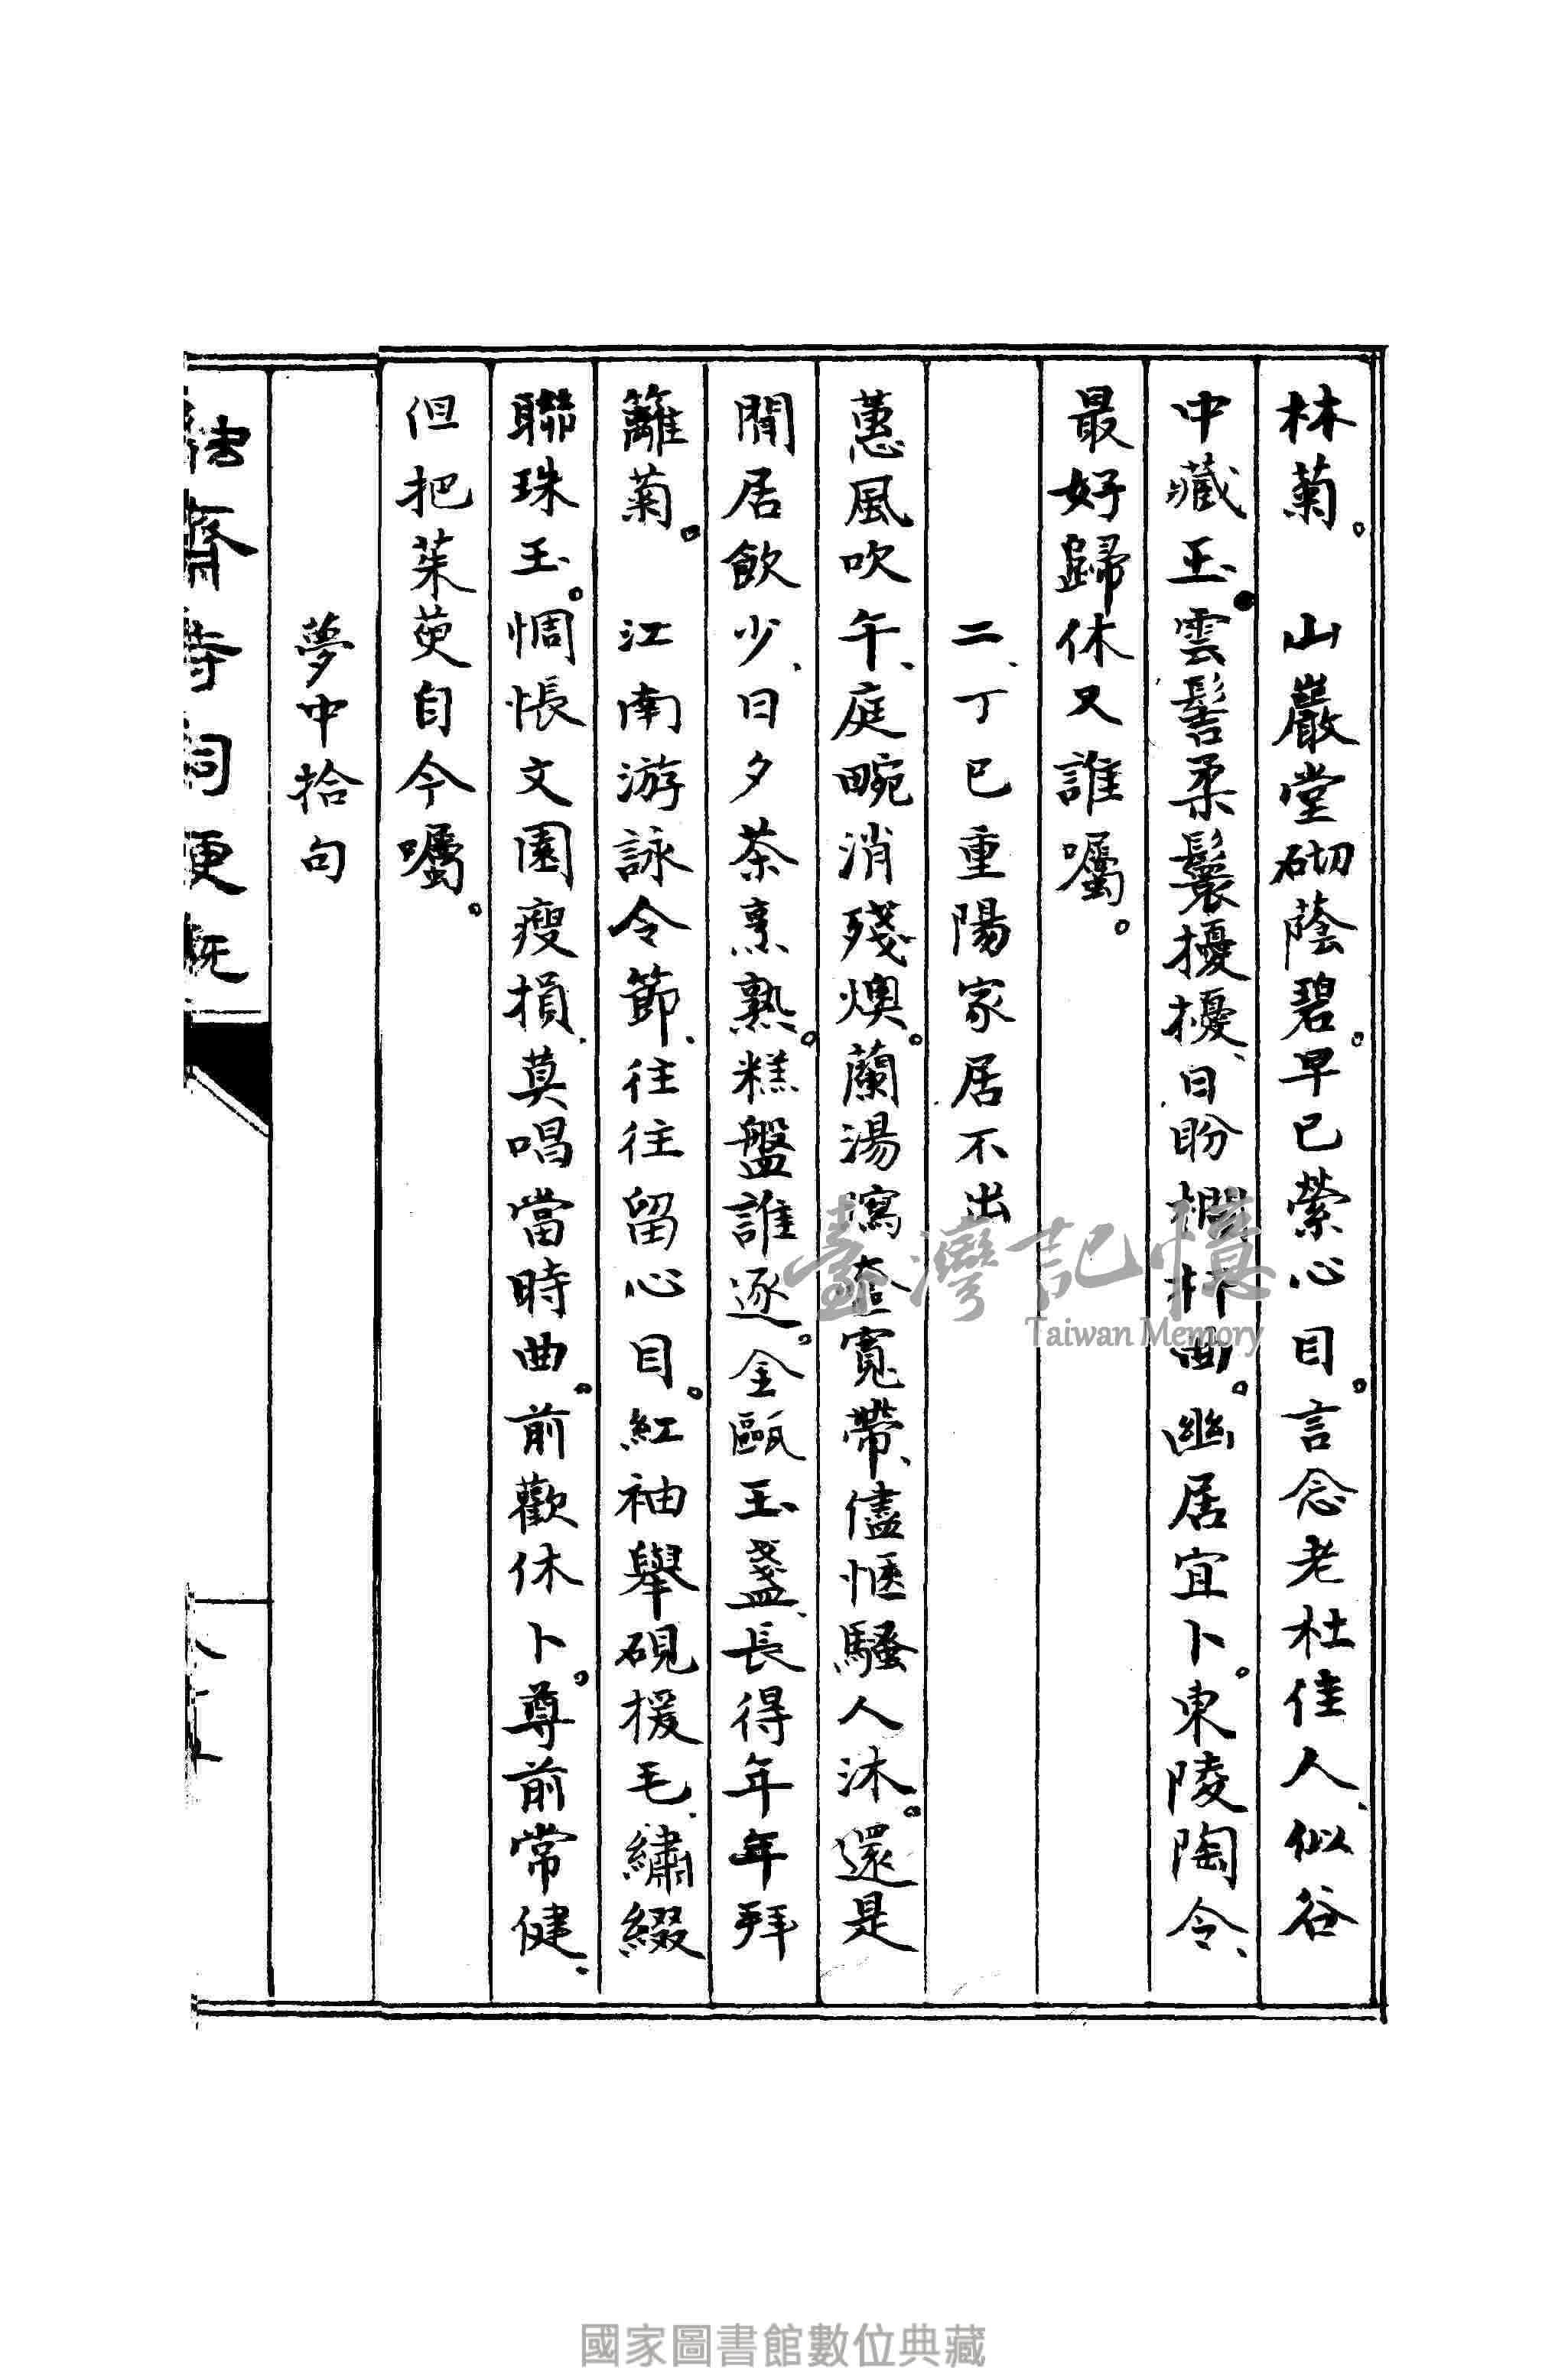 林菊。　山巖堂砌蔭碧。早已縈心目。言念老杜佳人、似谷
中藏玉。雲髻柔鬟擾擾、日盼欄杆曲。幽居宜卜。東陵陶令、
最好歸休又誰囑。
二、丁巳重陽家居不出
蕙風吹午、庭畹消殘燠。蘭湯瀉奩寬帶、儘愜騷人沐。還是
閒居飲少、日夕茶烹熟。糕盤誰逐。金甌玉盞、長得年年拜
籬菊。　江南游詠令節、往往留心目。紅袖舉硯援毛、繡綴
聯珠玉。惆悵文園瘦損、莫唱當時曲。前歡休卜。尊前常健、
但把茱萸自今囑。
夢中拾句
齋詩詞更概
臺灣記憶
Taiwan Memory
國家圖書館數位典藏